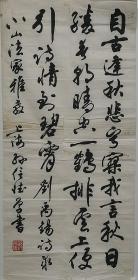 自古逢秋悲寂寥我言秋日
勝春朝晴空一鶴排雲上便
引詩情到碧霄 劉禹錫詩
山法家雅教 上海孫信德書